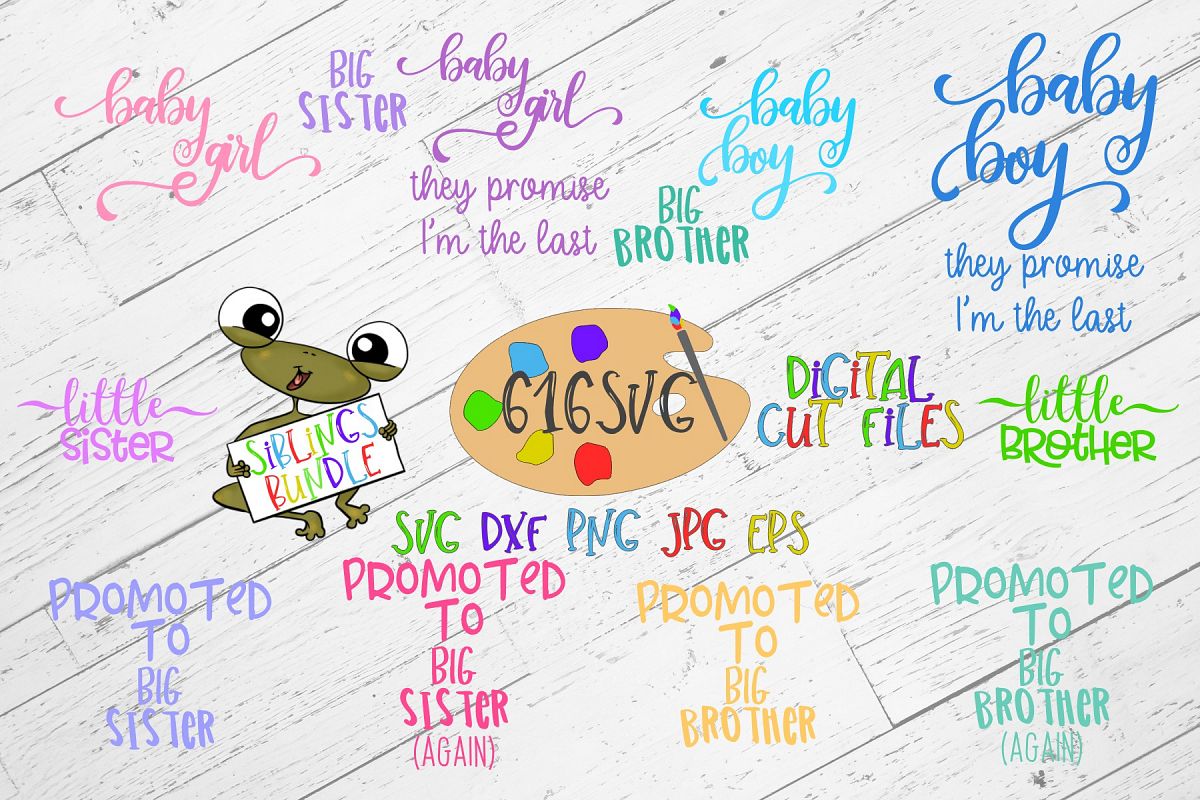 baby
girl
BIG
SISTER
baby
girl
they promise
I'm the last
baby
boy
BIG
BROTHER
baby
boy
they promise
I'm the last
little
SISTER
SIBLINGS
BUNDLE
616SVG
DIGITAL
CUT FILES
little
BROTHER
SVG DXF PNG JPG EPS
PROMOTED
TO
BIG
SISTER
PROMOTED
TO
BIG
SISTER
(AGAIN)
PROMOTED
TO
BIG
BROTHER
PROMOTED
TO
BIG
BROTHER
(AGAIN)